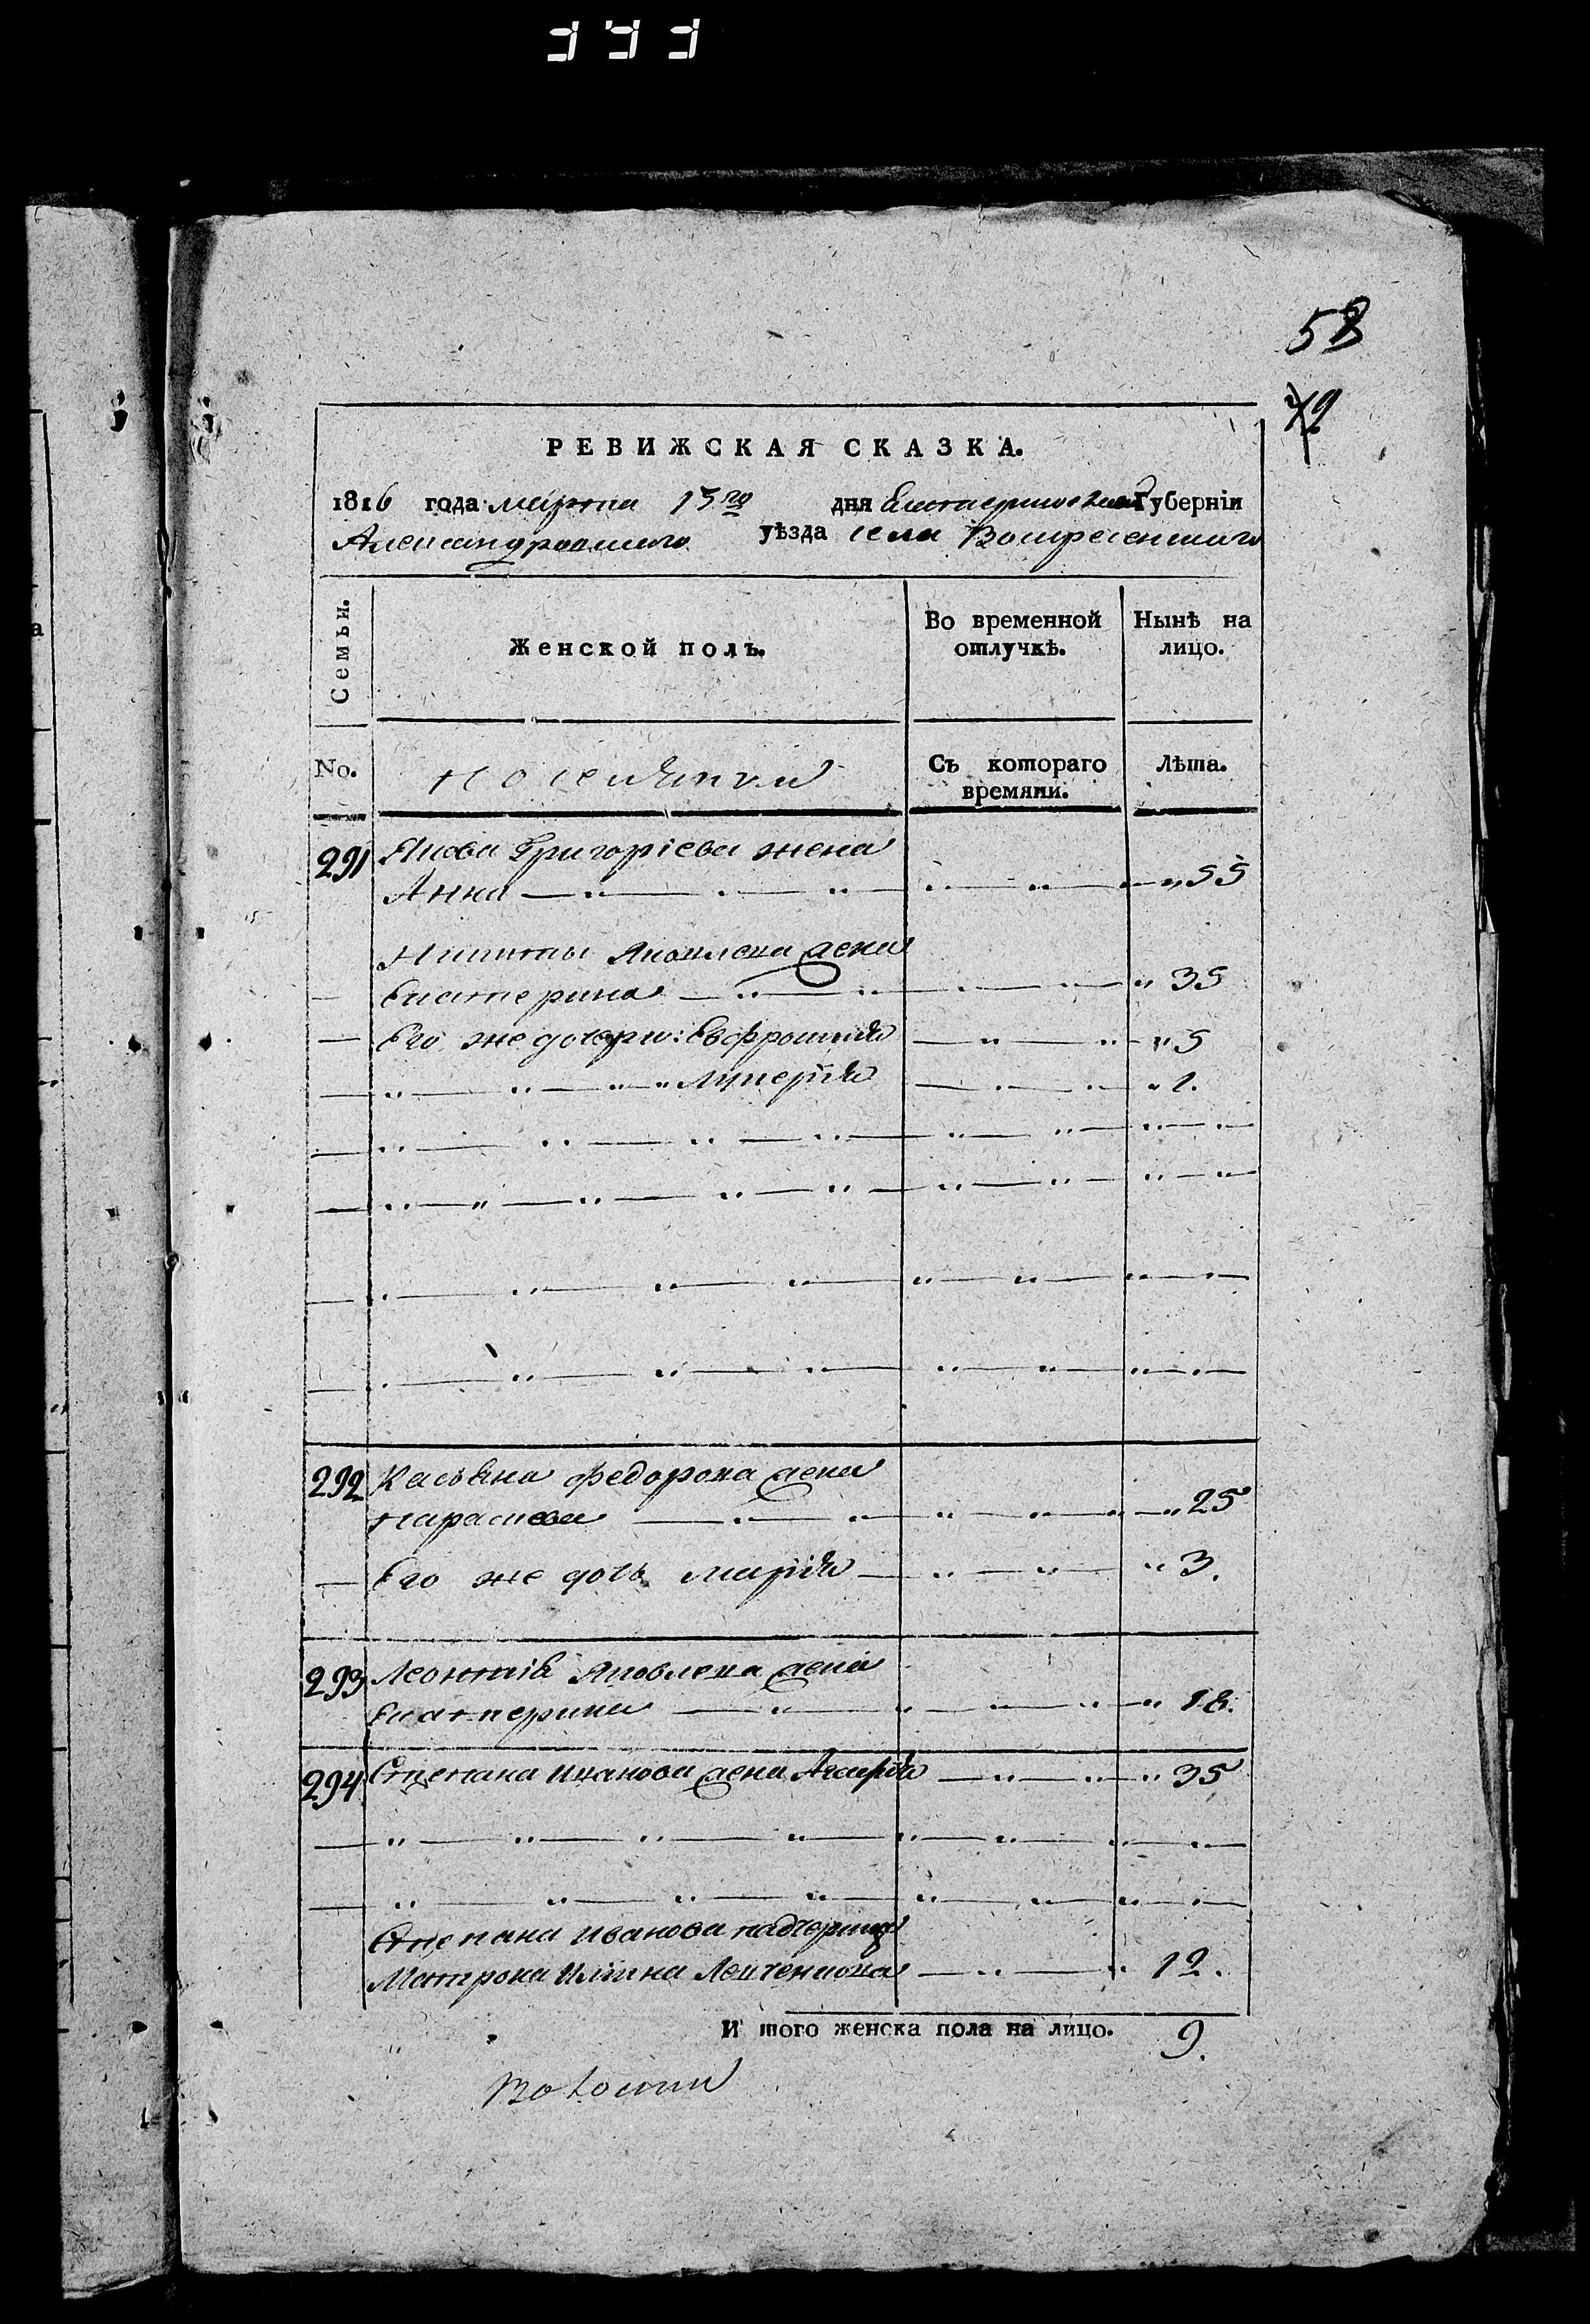 58
72
РЕВИЖСКАЯ СКАЗКА.
1816 года марта 15го дня Екатеринославской Губерніи
Александровскаго уѣзда села Воскресенскаго
Семьи.
Женской полъ.
Во временной отлучкѣ.
Нынѣ на лицо.
No.
Съ котораго времяни.
Лѣта.
291 Якова Григоріева жена
Анна 55
Никиты Яковлева жена
Екатерина 35
Его же дочери: Евфросинія 5
Лукерія 1.
292 Касьяна Федорова жена
Параскева 25
Его же дочь Марія 3.
293 Леонтія Яковлева жена
Екатерина 18.
294 Степана Иванова жена 35
Степана Иванова падчерица
Матрона Ильина 12.
И того женска пола на лицо. 9.